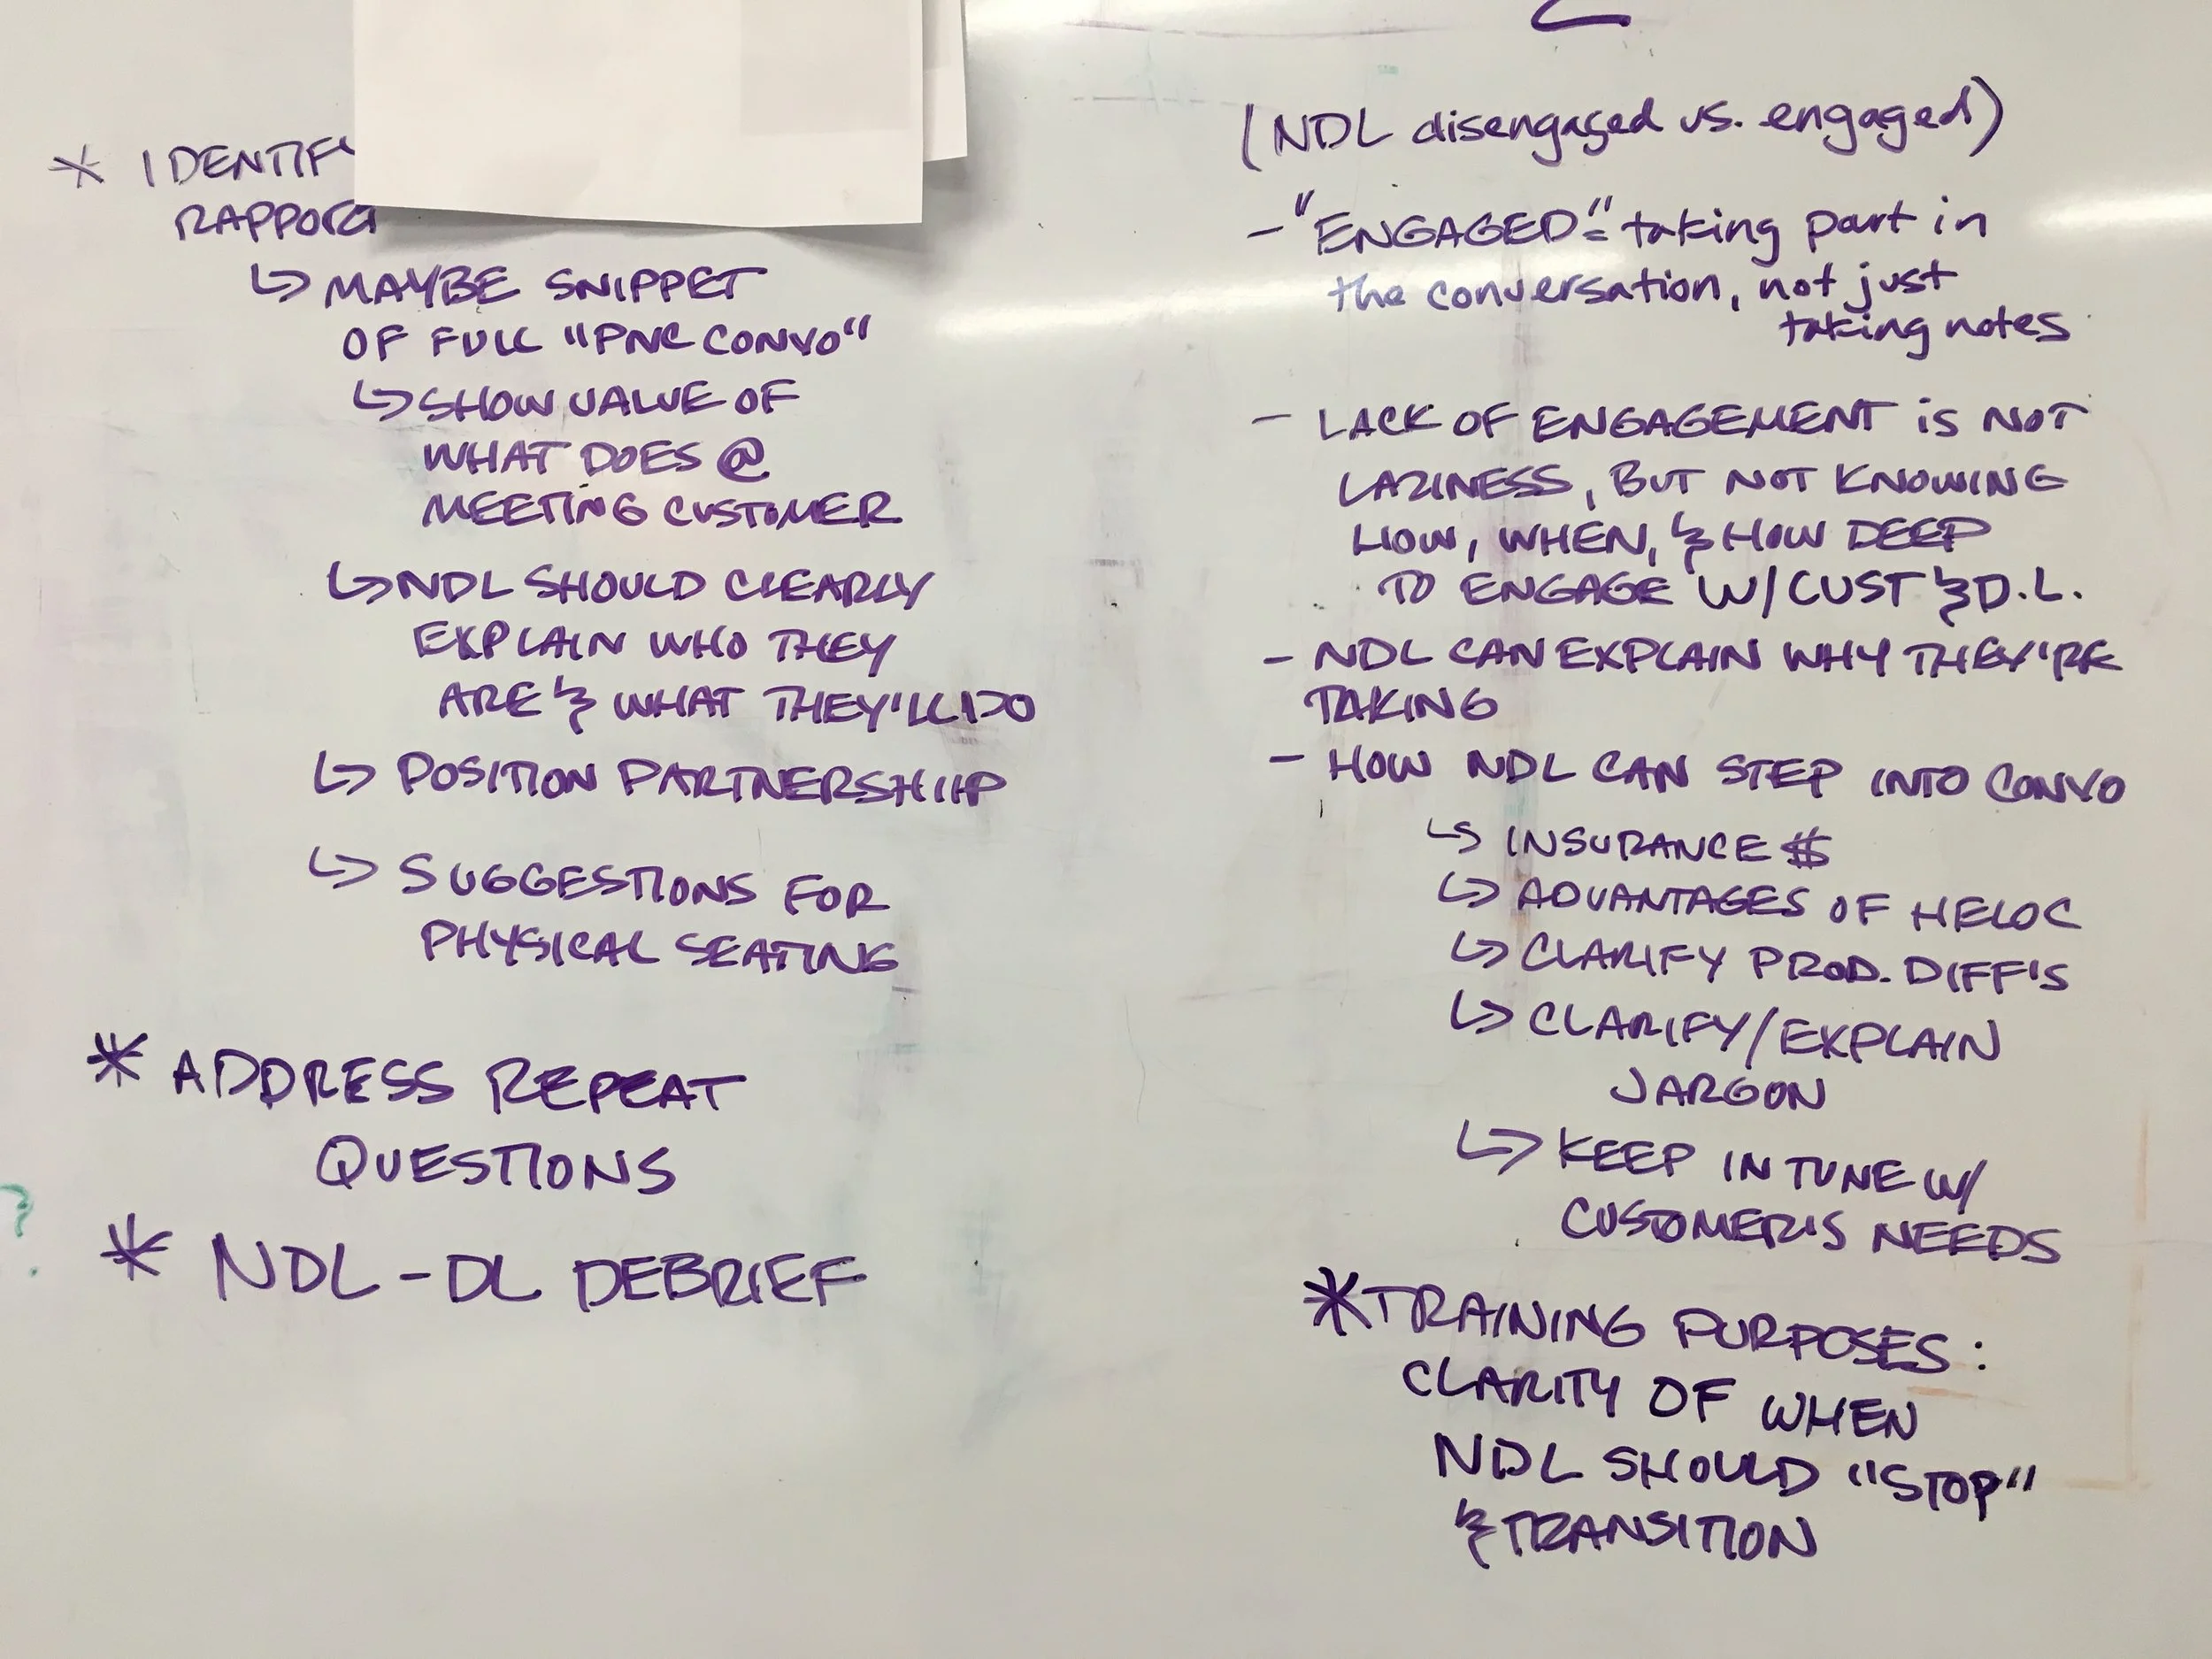 * IDENTIFY
RAPPORT
↳ MAYBE SNIPPET
OF FULL "PNC CONVO"
↳ SHOW VALUE OF
WHAT DOES @
MEETING CUSTOMER
↳ NDL SHOULD CLEARLY
EXPLAIN WHO THEY
ARE & WHAT THEY'LL DO
↳ POSITION PARTNERSHIIP
↳ SUGGESTIONS FOR
PHYSICAL SEATING
* ADDRESS REPEAT
QUESTIONS
* NDL - DL DEBRIEF
?
(NDL disengaged vs. engaged)
- "ENGAGED" = taking part in
the conversation, not just
taking notes
- LACK OF ENGAGEMENT is NOT
LAZINESS, BUT NOT KNOWING
HOW, WHEN, & HOW DEEP
TO ENGAGE W/ CUST & D.L.
- NDL CAN EXPLAIN WHY THEY'RE
TAKING
- HOW NDL CAN STEP INTO CONVO
↳ INSURANCE $
↳ ADVANTAGES OF HELOC
↳ CLARIFY PROD. DIFF'S
↳ CLARIFY/EXPLAIN
JARGON
↳ KEEP IN TUNE W/
CUSTOMER'S NEEDS
* TRAINING PURPOSES:
CLARITY OF WHEN
NDL SHOULD "STOP"
& TRANSITION